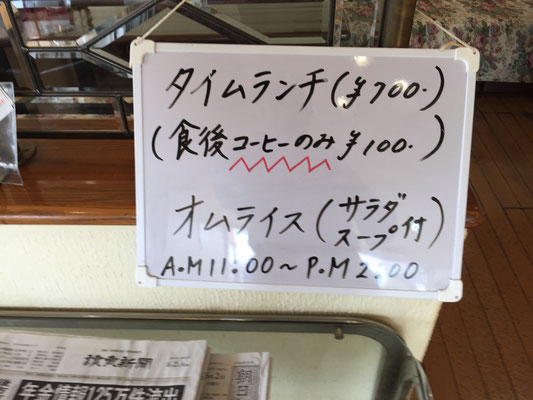 タイムランチ(¥700.)
(食後コーヒーのみ¥100.)
オムライス(サラダスープ付)
A.M11:00~P.M2:00
讀賣新聞
年金情報125万件流出
朝日